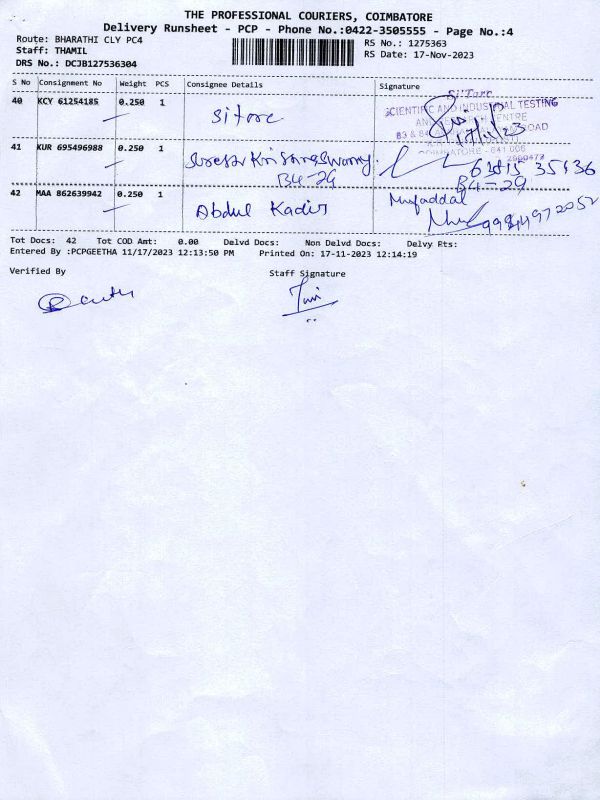 THE PROFESSIONAL COURIERS, COIMBATORE
Delivery Runsheet - PCP - Phone No.:0422-3505555 - Page No.:4
Route: BHARATHI CLY PC4
RS No.: 1275363
Staff: THAMIL
RS Date: 17-Nov-2023
DRS No.: DCJB127536304
S No Consignment No Weight PCS Consignee Details Signature
40 KCY 61254185 0.250 1 Sitarc
SiTarc
SCIENTIFIC AND INDUSTRIAL TESTING
17/11/23
COIMBATORE - 641 006
41 KUR 695496988 0.250 1
B4-29
B4-29
42 MAA 862639942 0.250 1 Abdul Kadir
Mufaddal
Tot Docs: 42 Tot COD Amt: 0.00 Delvd Docs: Non Delvd Docs: Delvy Pts:
Entered By :PCPGEETHA 11/17/2023 12:13:50 PM Printed On: 17-11-2023 12:14:19
Verified By Staff Signature